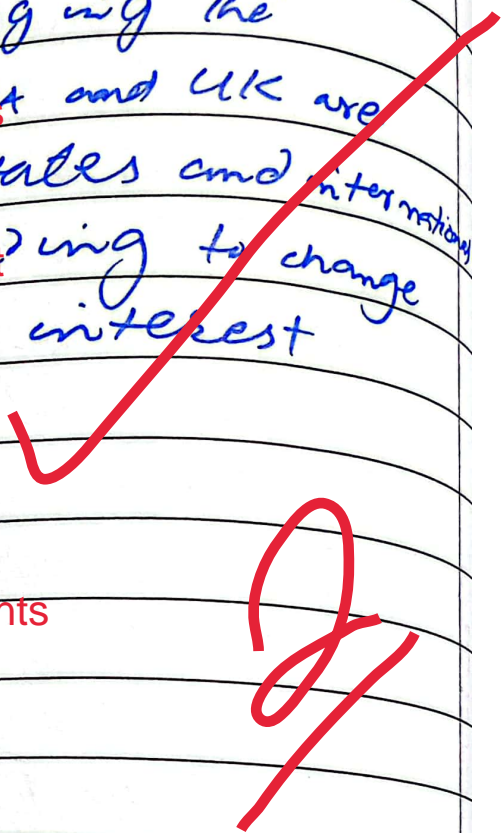 the
A and UK are
ates and international
ing to change
interest
nts
2/